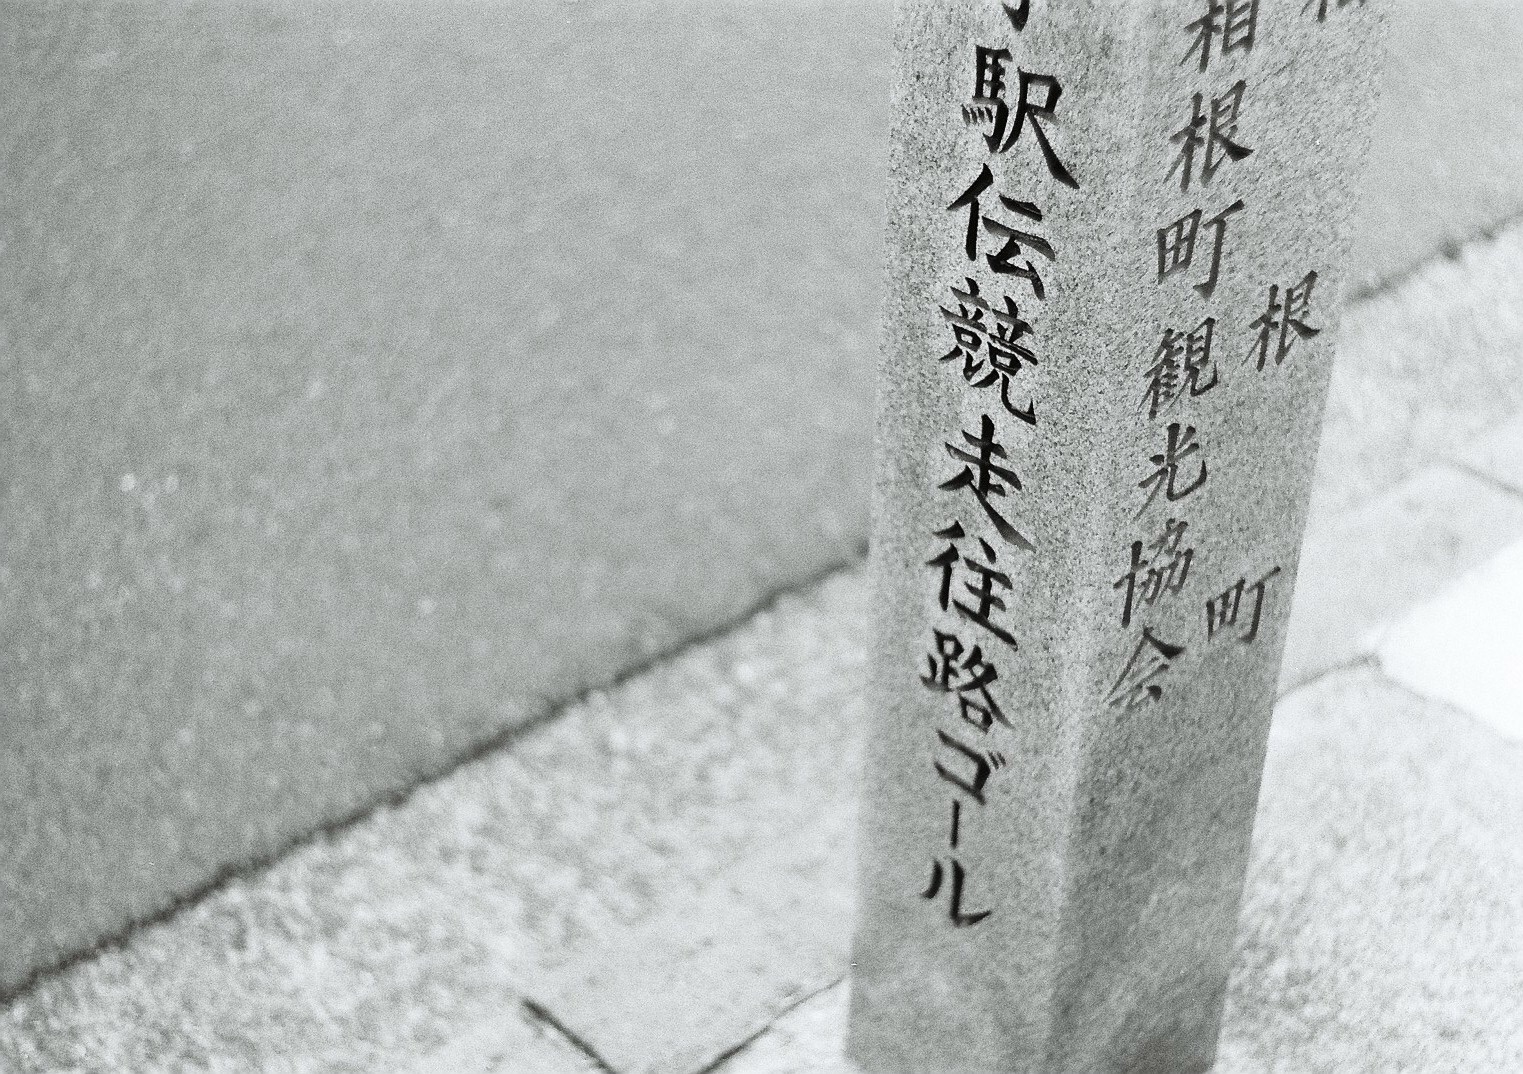 駅伝競走往路ゴール
根町
箱根町観光協会